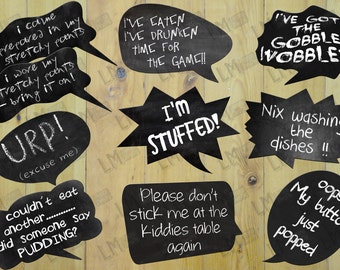 i came
prepared in my
stretchy pants
i wore my
stretchy pants
bring it on!
I'VE EATEN
I'VE DRUNKEN
TIME FOR
THE GAME!!
I'VE GOT
THE
GOBBLE
WOBBLE
URP!
(excuse me)
I'M
STUFFED!
Nix washing
the
dishes !!
couldn't eat
another............
did someone say
PUDDING?
Please don't
stick me at the
Kiddies table
again
oops
My button
just
popped